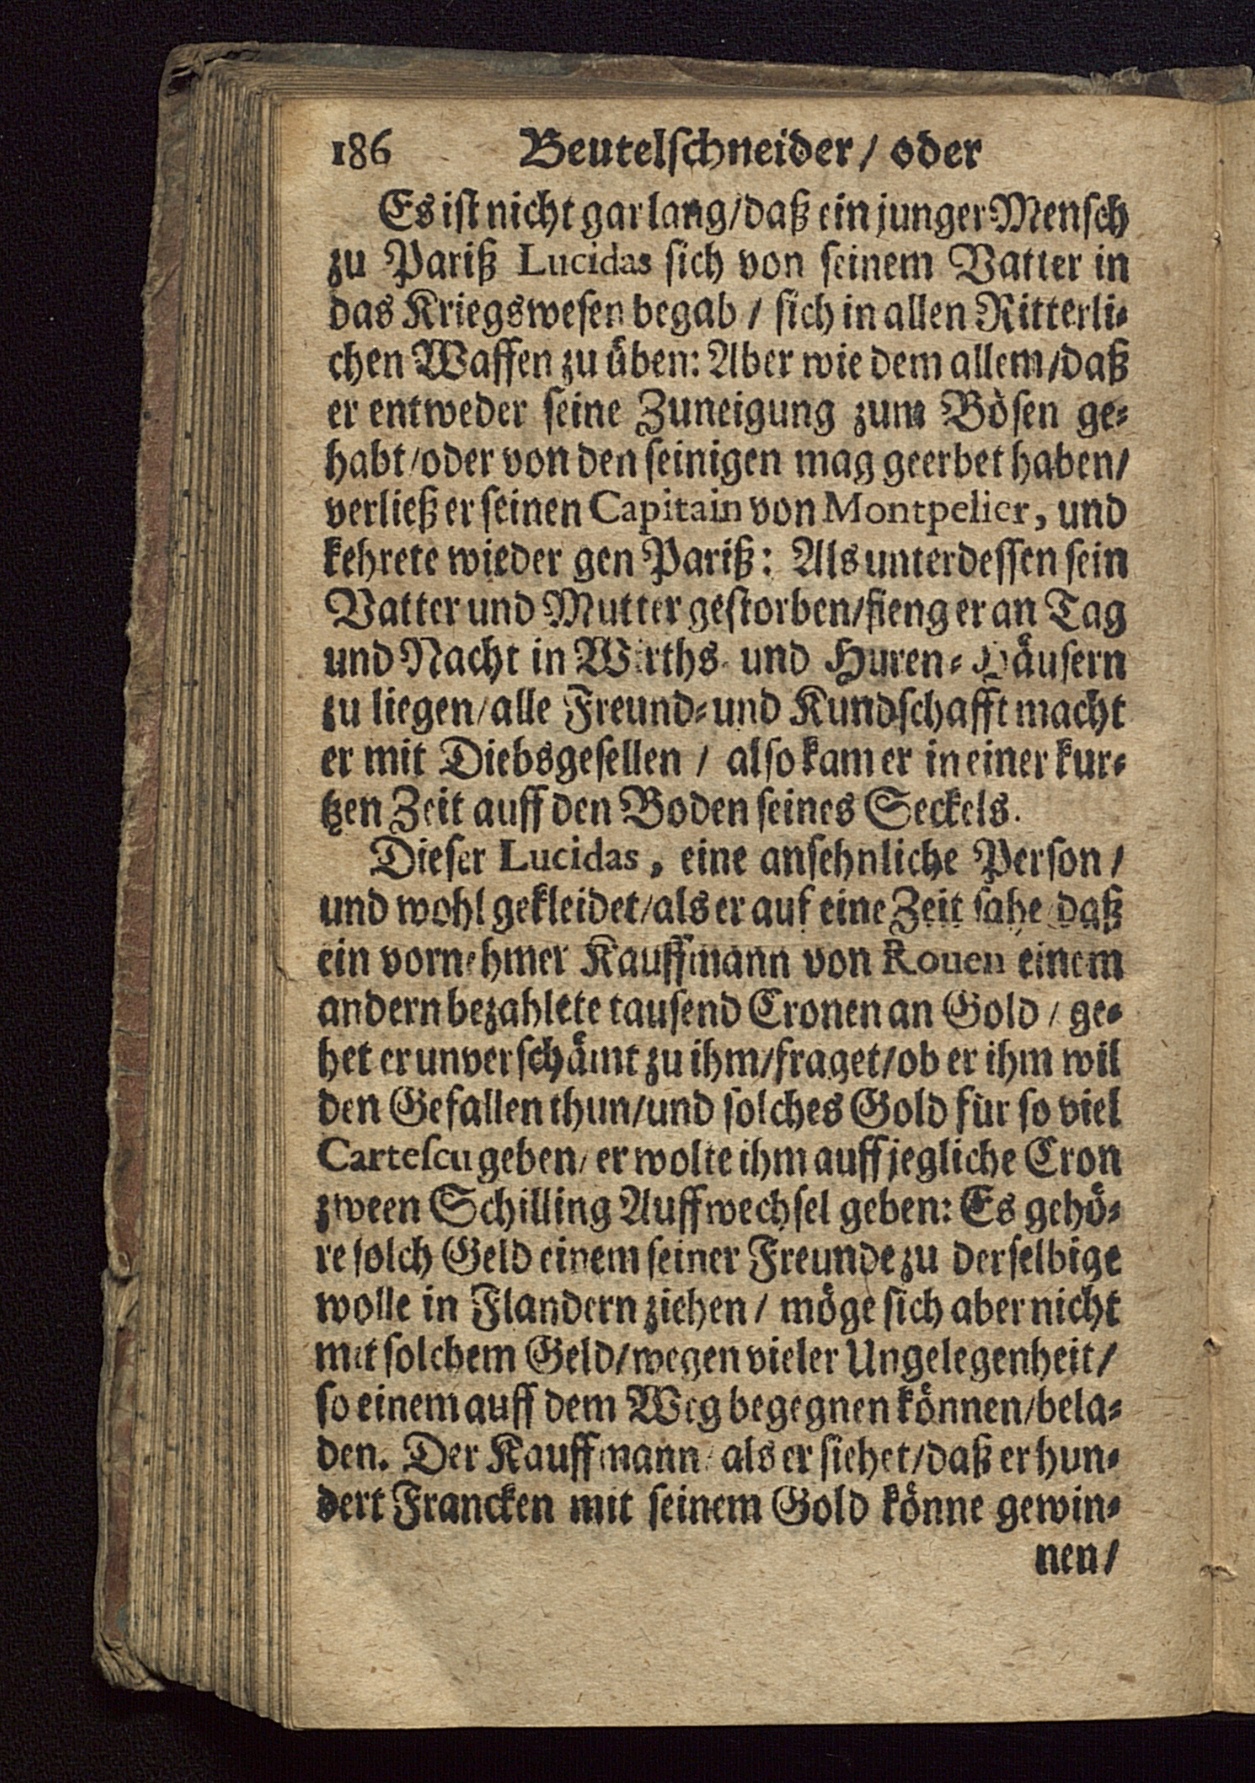 186 Beutelschneider / oder
Es ist nicht gar lang/daß ein junger Mensch
zu Pariß Lucidas sich von seinem Vatter in
das Kriegswesen begab / sich in allen Ritterli-
chen Waffen zu üben: Aber wie dem allem/daß
er entweder seine Zuneigung zum Bösen ge-
habt/oder von den seinigen mag geerbet haben/
verließ er seinen Capitain von Montpelier, und
kehrete wieder gen Pariß: Als unterdessen sein
Vatter und Mutter gestorben/fieng er an Tag
und Nacht in Wirths- und Huren-Häusern
zu liegen/alle Freund-und Kundschafft macht
er mit Diebsgesellen / also kam er in einer kur-
tzen Zeit auff den Boden seines Seckels.
Dieser Lucidas, eine ansehnliche Person /
und wohl gekleidet/als er auf eine Zeit sahe/daß
ein vornehmer Kauffmann von Rouen einem
andern bezahlete tausend Cronen an Gold / ge-
het er unverschämt zu ihm/fraget/ob er ihm wil
den Gefallen thun/und solches Gold für so viel
Cartescu geben/ er wolte ihm auff jegliche Cron
zween Schilling Auffwechsel geben: Es gehö-
re solch Geld einem seiner Freunde zu derselbige
wolle in Flandern ziehen / möge sich aber nicht
mit solchem Geld/wegen vieler Ungelegenheit/
so einem auff dem Weg begegnen können/bela-
den. Der Kauffmann/ als er siehet/daß er hun-
dert Francken mit seinem Gold könne gewin-
nen/